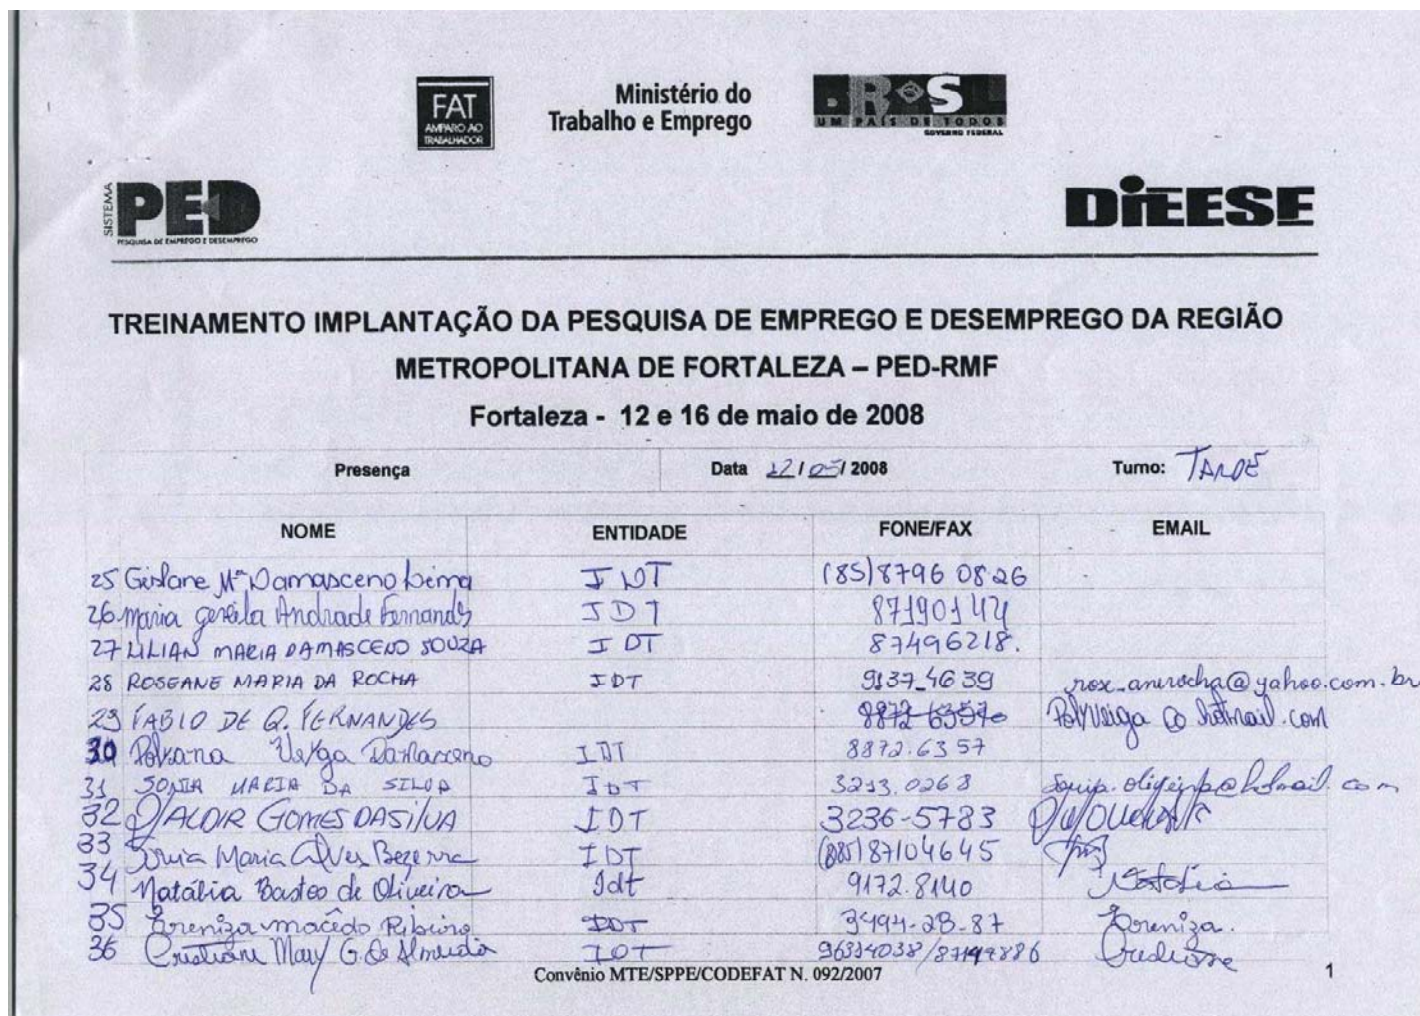 FAT
AMPARO AO
TRABALHADOR
Ministério do
Trabalho e Emprego
BRASIL
UM PAÍS DE TODOS
GOVERNO FEDERAL
SISTEMA
PED
PESQUISA DE EMPREGO E DESEMPREGO
DIEESE
TREINAMENTO IMPLANTAÇÃO DA PESQUISA DE EMPREGO E DESEMPREGO DA REGIÃO
METROPOLITANA DE FORTALEZA – PED-RMF
Fortaleza - 12 e 16 de maio de 2008
Presença Data 12/05/2008 Turno: TARDE
NOME ENTIDADE FONE/FAX EMAIL
25 Gislane Mª Damasceno Lima IDT (85)8796 0826
26 Maria Andrade Fernandes IDT 87190144
27 LILIAN MARIA DAMASCENO SOUZA IDT 87496218.
28 ROSEANE MARIA DA ROCHA IDT 9137-4639 @yahoo.com.br
29 FABIO DE Q. FERNANDES 8872 6357 Polyveiga@hotmail.com
30 Veiga Damasceno IDT 8872.6357
31 SONIA MARIA DA SILVA IDT 3213.0268
32 VALDIR GOMES DA SILVA IDT 3236-5783
33 Sonia Maria Alves Bezerra IDT (085)87104645
34 Natália Bastos de Oliveira Idt 9172.8140 Natália
35 Ereniza macêdo Ribeiro IDT 3494-23-87 Ereniza.
36 Cristiane Mary G. de Almeida IDT Cristiane
Convênio MTE/SPPE/CODEFAT N. 092/2007
1